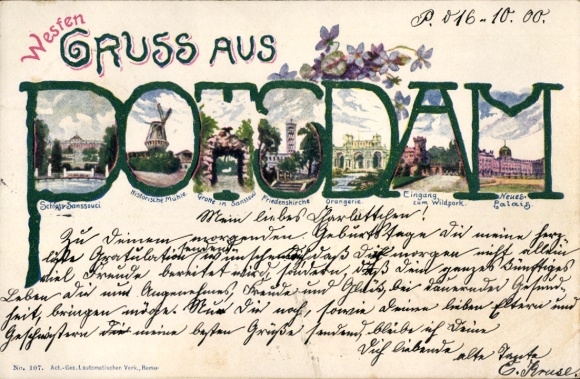 P. d 16-10.00.
Westen
GRUSS AUS
POTSDAM
Schloss Sanssouci
Historische Mühle
Grotte in Sanssouci
Friedenskirche
Orangerie
Eingang zum Wildpark.
Neues-Palais.
Mein liebes Charlottchen!
Zu Deinem morgenden Geburtstage Dir meine herz
liche Gratulation sendend, wünsche ich, daß Dich morgen nicht allein
viel Freude bereitet wird, sondern, daß Dein ganzes künftiges
Leben Dir nur Angenehmes, Freude und Glück, bei dauernder Gesund-
heit, bringen möge. Nur Dir noch, sowie Deinen lieben Eltern und
Geschwistern meine besten Grüße sendend, bleibe ich Deine
Dich liebende alte Tante
E. Kruse.
No. 107. Act.-Ges. f. automatischen Verk., Berlin